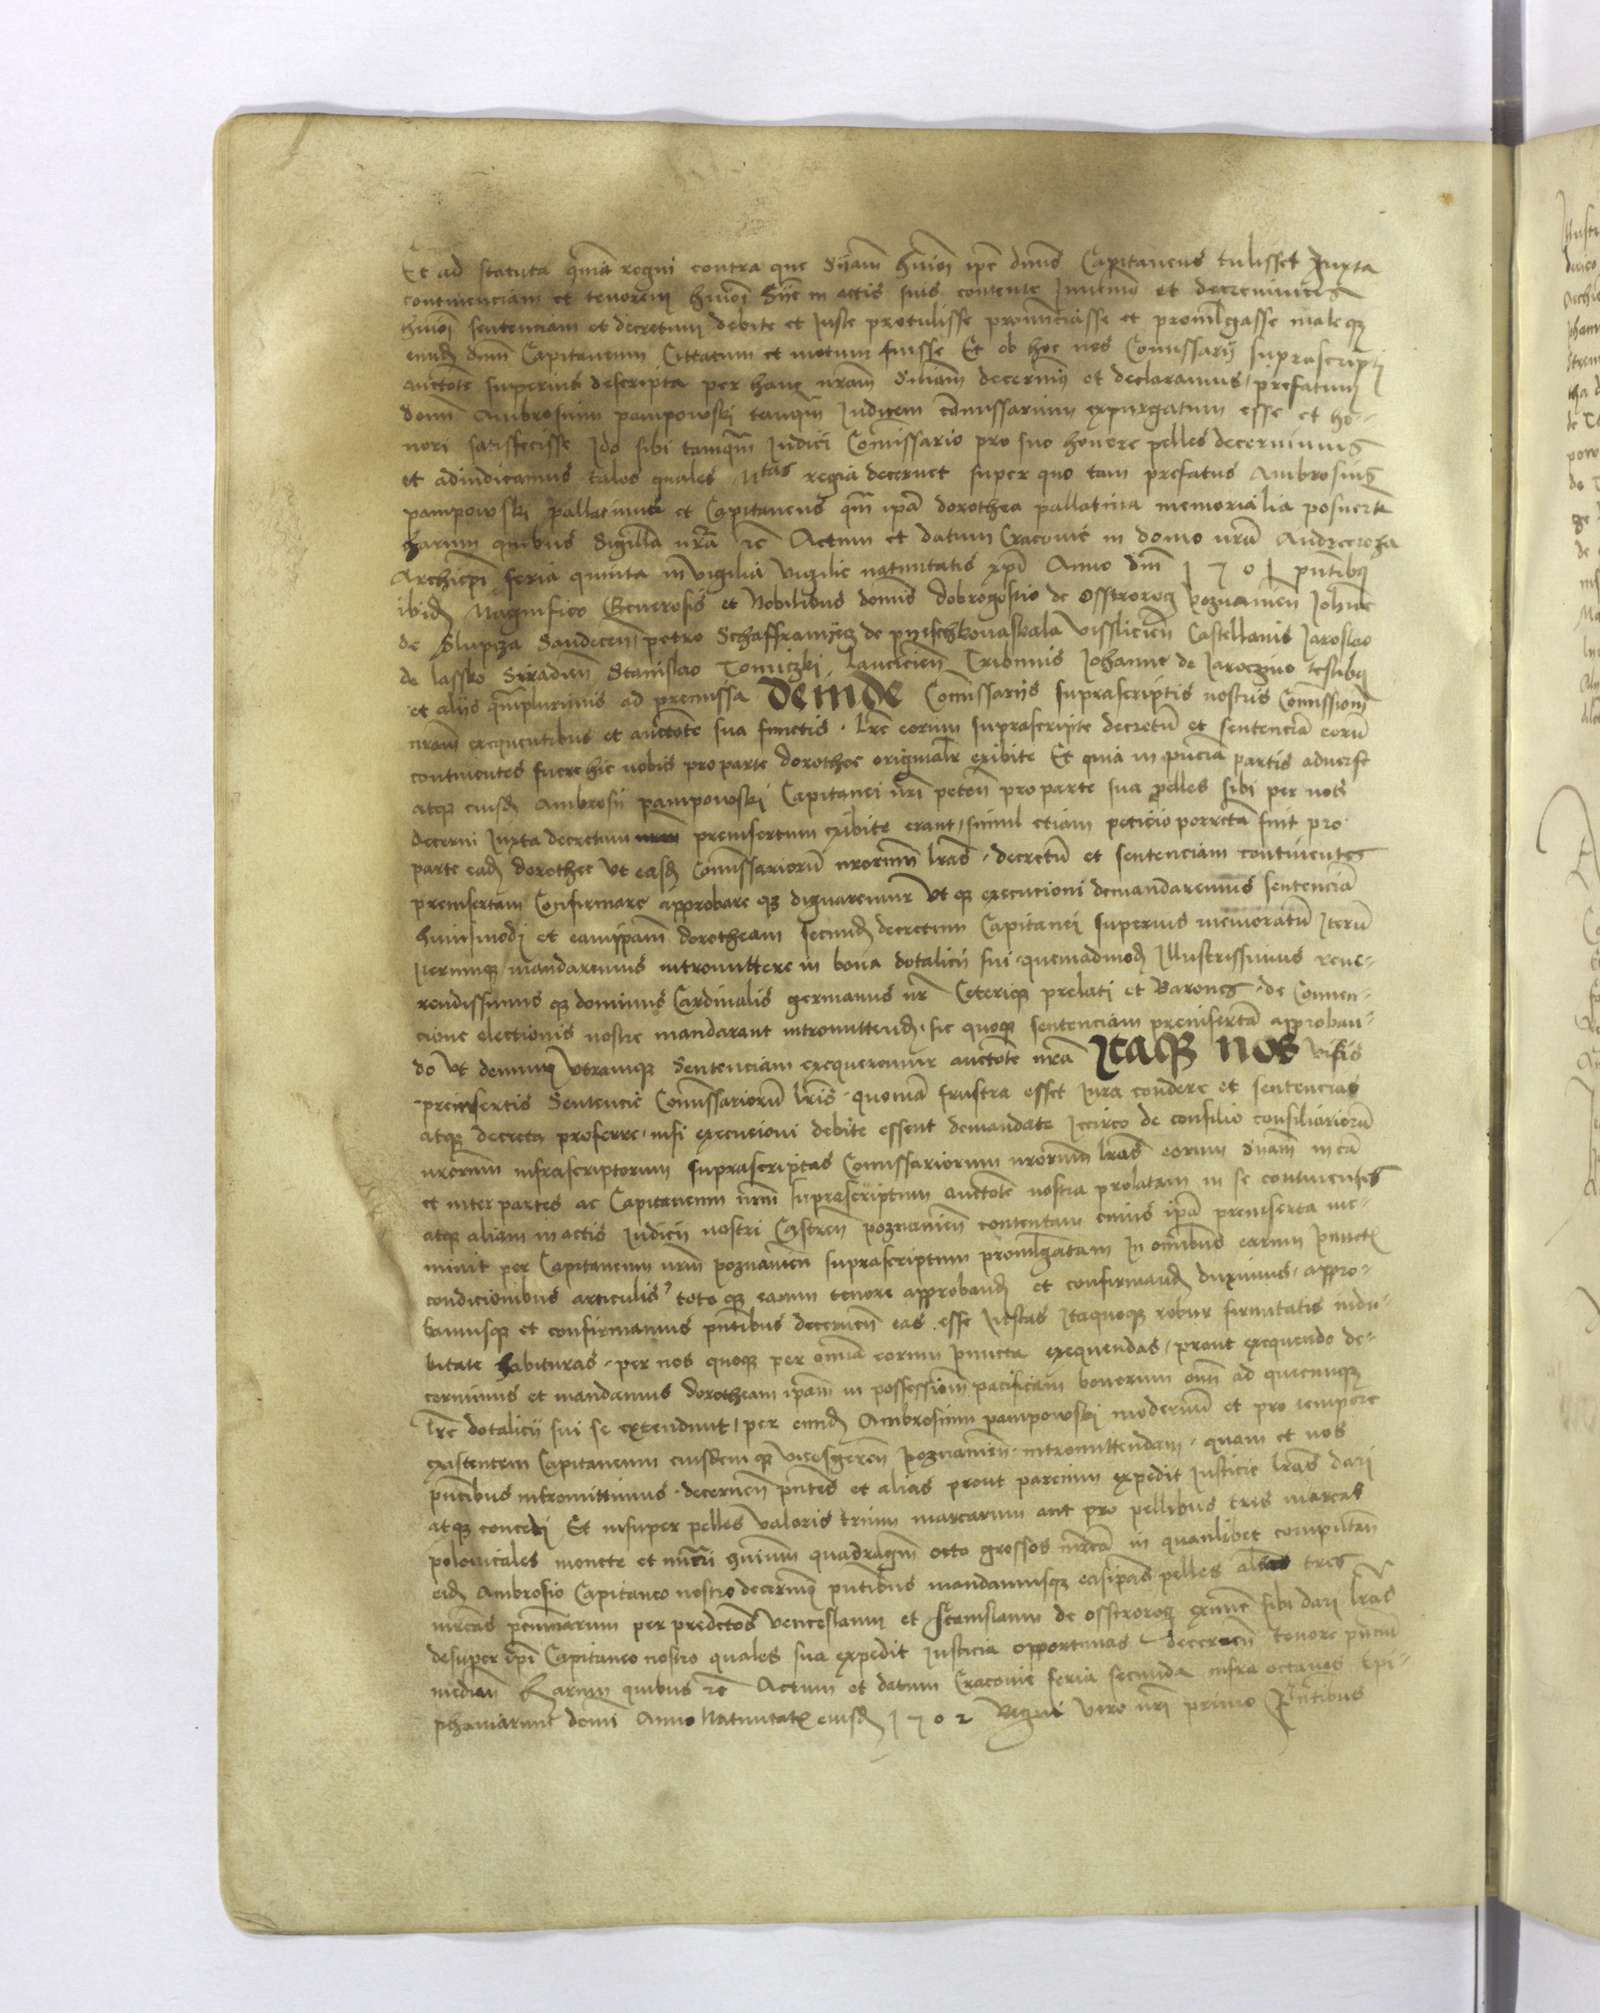 Et ad statuta quia regni contra que Sniam huiusmodi ipse dominus Capitaneus tulisset Juxta
continenciam et tenorem huiusmodi in actis suis contente Invenimus et decrevimus
huiusmodi sentenciam et decretum debite et Juste protulisse pronuncciasse et promlgasse male qz
eundem dnm Capitaneum Cittatum et motum fuisse Et ob hoc nos Comissarij suprascripti
auctoritate superius descripta per hanc nram Sniam decernimus et declaramus prefatum
domn Ambrosium pampowski tamqm Judicem Comissarium expurgatum esse et ho-
nori satisfecisse Ido sibi tamquam Judici Comissario pro suo honore pelles decernimus
et adiudicamus tales quales Mtas regia decernet super quo tam prefatus Ambrosius
pampowski pallatinus et Capitaneus qm ipa dorothea pallatina memorialia posuerunt
harum quibus Sigilla nra etc Actum et datum Cracovie in domo nra Andree roza
Archiepi feria quinta in vigilia vigilie nativitatis xpi Anno dni 1501 pntibus
ibidem Magnifico Generosis et Nobilibus domnis dobrogostio de Osstrorog poznanien Johanne
de Slupcza Sandecen petro Schaffranyecz de pyeschkowaskala visslicien Castellanis Jaroslao
de lassko Siradien Stanislao Tomiczki lancicien Tribunis Johanne de Jaroczino testibus
et aliis qmplurimis ad premissa Deinde Comissariis suprascriptis nostris Comissionem
nram exequentibus et auctote sua functis lre eorum suprascripte decretum et sentenciam eorum
continentes fuere hic nobis pro parte dorothee originalr exibite Et quia in pncia partis adverse
atqz eiusdem Ambrosii pampowski Capitanei nri peten pro parte sua pelles sibi per nos
decerni Juxta decretum preinsertum exibite erant simul etiam peticio porrecta fuit pro
parte eadem dorothee Ut easdem Comissariorum nrorum lras decretum et sentenciam continentes
preinsertam Confirmare approbare qz dignaremur Ut qz execucioni demandaremus sentenciam
huiusmodi et eamipsam dorotheam secundum decretum Capitanei superius memoratum Iterum
Iterumqz mandaremus intromittere in bona dotalicii sui quemadmodum Illustrissimus reve-
rendissimus qz dominus Cardinalis germanus nr Ceteriqz prelati et Barones de Conven-
cione electionis nostre mandarant intromittendam sic quoqz sentenciam preinsertam approban-
do Ut demum utramqz Sentenciam exequeremur auctote nra Itaqz nos visis
preinsertis Sentencie Comissariorum lris quoniam frustra esset Jura condere et sentencias
atqz decreta proferre nisi execucioni debite essent demandate Iccirco de consilio consiliariorum
nrorum infrascriptorum suprascriptas Comissariorum nrorum lras eorum sniam in ca
et inter partes ac Capitaneum nrm suprascriptum auctote nostra prolatam in se continentes
atqz aliam in actis Judicii nostri Castren poznanien contentam cuius ipa preinserta me-
minit per Capitaneum nrm poznanien suprascriptum promlgatam In omnibus earum punctis
condicionibus articulis toto qz earum tenore approbandas et confirmandas duximus appro-
bamusqz et confirmamus pntibus decernen eas esse Justas Itaquoqz robur firmitatis indu-
bitate habituras per nos quoqz per omnia eorum puncta exequendas prout exequendo de-
cernimus et mandamus dorotheam ipam in possessionem pacificam bonorum omn ad quecumqz
lre dotalicii sui se extendunt per eundem Ambrosium pampowski modernum et pro tempore
existentem Capitaneum eiusdem qz vicesgeren poznanien intromittendam quam et nos
pntibus intromittimus decernen pntes et alias prout parcium expedit Justicie lras dari
atqz concedi Et insuper pelles valoris trium marcarum aut pro pellibus tris marcas
polonicales monete et numeri quadragin octo grossos in quamlibet computan
eidem Ambrosio Capitaneo nostro decernimus pntibus mandamusqz easipas pelles alias tres
mrcas pecuniarum per predictos Venceslaum et Stanislaum de Osstrorog sibi dari lras
desuper ipi Capitaneo nostro quales sua expedit Justicia opportunas decernen tenore pncium
median Harum quibus etc Actum et datum Cracovie feria secunda infra octavas Epi-
phaniarum domi Anno Nativitatis eiusdem 1502 Regni vero nri primo Pntibus